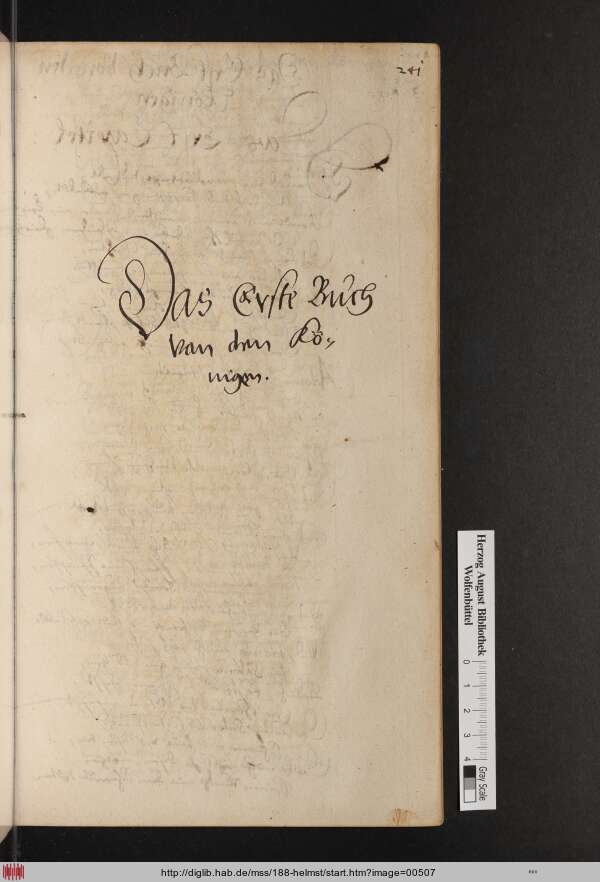 241
Das Erste Buch
Van den Ko⸗
nigen.
Herzog August Bibliothek
Wolfenbüttel
0 1 2 3 4
Gray Scale
http://diglib.hab.de/mss/188-helmst/start.htm?image=00507